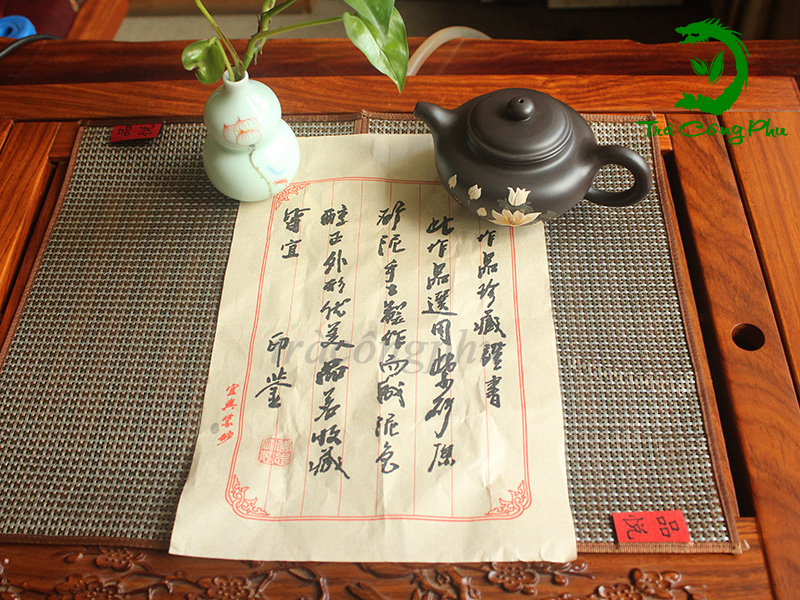 Trà Công Phu
作品珍藏證書
此作品選用紫砂原
矿泥手工製作而成泥色
醇正外形优美品茗收藏
皆宜
宜興紫砂
tràcôngphu
品悦